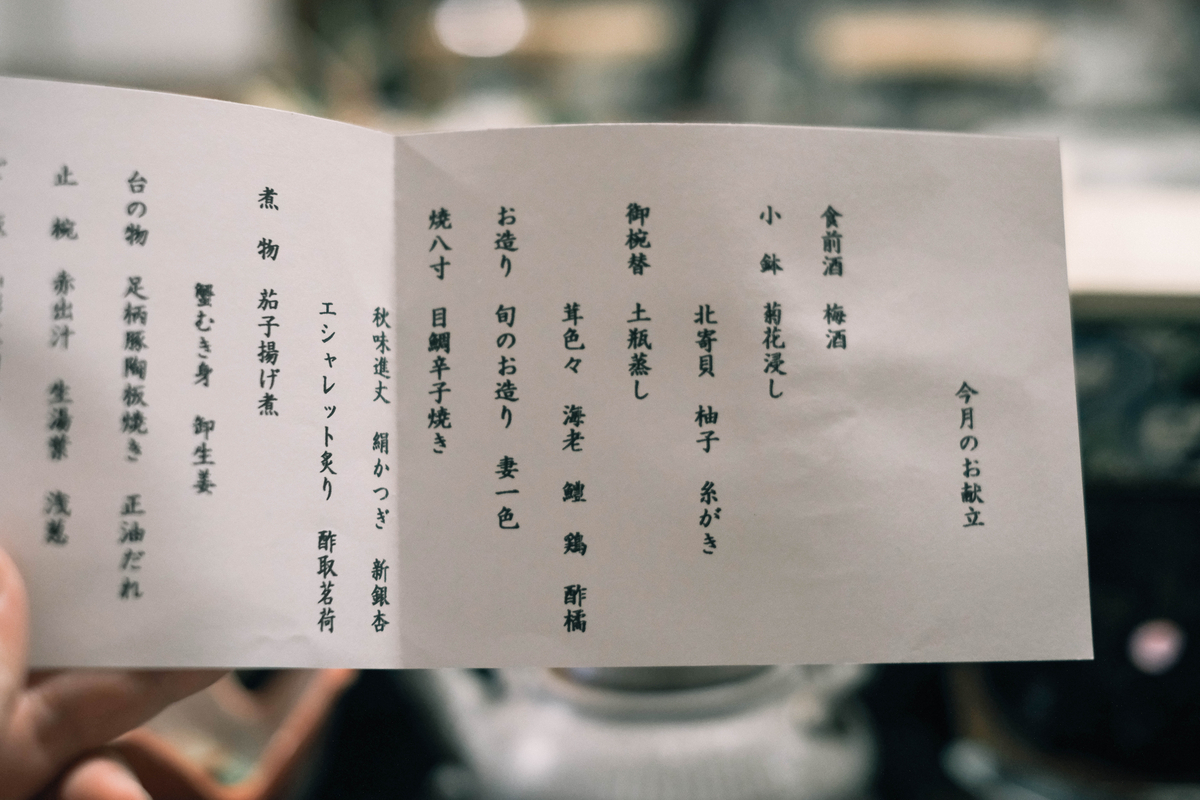 今月のお献立
食前酒 梅酒
小鉢 菊花浸し
北寄貝 柚子 糸がき
御椀替 土瓶蒸し
茸色々 海老 鱧 鶏 酢橘
お造り 旬のお造り 妻一色
焼八寸 目鯛辛子焼き
秋味進丈 絹かつぎ 新銀杏
エシャレット炙り 酢取茗荷
煮物 茄子揚げ煮
蟹むき身 卸生姜
台の物 足柄豚陶板焼き 正油だれ
止椀 赤出汁 生湯葉 浅葱